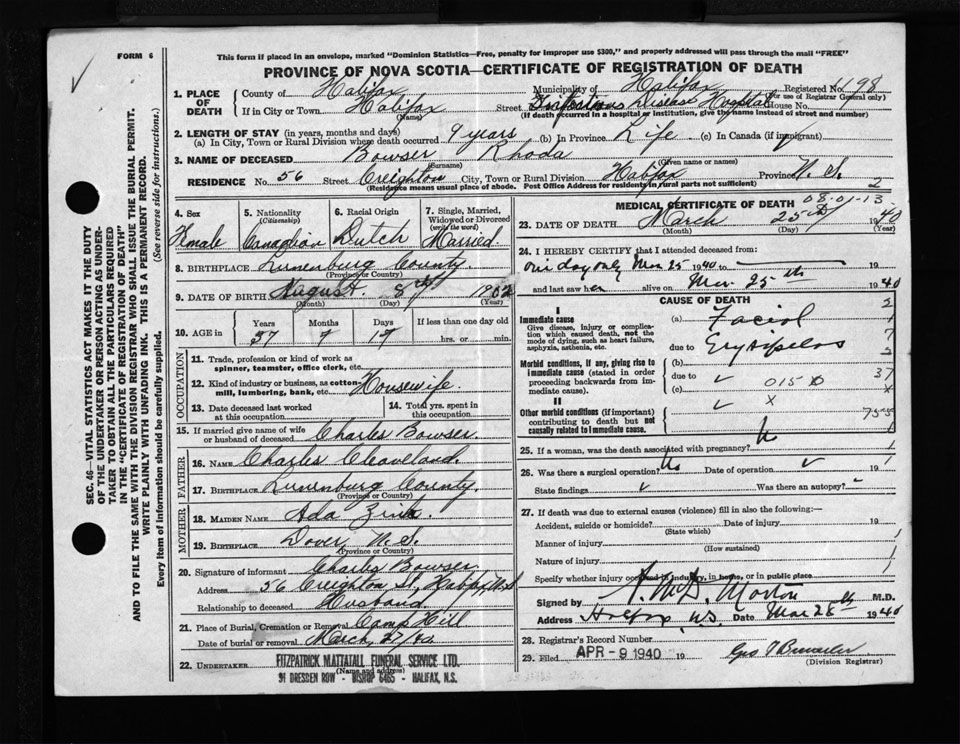 FORM 6
This form if placed in an envelope, marked "Dominion Statistics—Free, penalty for improper use $300," and properly addressed will pass through the mail "FREE"
PROVINCE OF NOVA SCOTIA—CERTIFICATE OF REGISTRATION OF DEATH
SEC. 46—VITAL STATISTICS ACT MAKES IT THE DUTY
OF THE UNDERTAKER OR PERSON ACTING AS UNDER-
TAKER TO OBTAIN ALL THE PARTICULARS REQUIRED
IN THE "CERTIFICATE OF REGISTRATION OF DEATH"
AND TO FILE THE SAME WITH THE DIVISION REGISTRAR WHO SHALL ISSUE THE BURIAL PERMIT.
WRITE PLAINLY WITH UNFADING INK. THIS IS A PERMANENT RECORD.
Every item of information should be carefully supplied. (See reverse side for instructions.)
1. PLACE OF DEATH County of Halifax Municipality of Halifax Registered No. 1198
(For use of Registrar General only)
If in City or Town Halifax Street Infectious Disease Hospital House No.
(Name) (If death occurred in a hospital or institution, give the name instead of street and number)
2. LENGTH OF STAY (in years, months and days)
(a) In City, Town or Rural Division where death occurred 9 years (b) In Province Life (c) In Canada (if immigrant)
3. NAME OF DECEASED Bowser Rhoda
(Surname) (Given name or names)
RESIDENCE No. 56 Street Creighton City, Town or Rural Division Halifax Province N. S.
2
(Residence means usual place of abode. Post Office Address for residents in rural parts not sufficient)
4. Sex
Female
5. Nationality (Citizenship)
Canadian
6. Racial Origin
Dutch
7. Single, Married, Widowed or Divorced (write the word)
Married
8. BIRTHPLACE Lunenburg County.
(Province or Country)
9. DATE OF BIRTH August 8th 1902
(Month) (Day) (Year)
10. AGE in Years Months Days If less than one day old
37 7 17 hrs. or min.
OCCUPATION
11. Trade, profession or kind of work as spinner, teamster, office clerk, etc.
12. Kind of industry or business, as cotton-mill, lumbering, bank, etc. Housewife.
13. Date deceased last worked at this occupation
14. Total yrs. spent in this occupation
15. If married give name of wife or husband of deceased Charles Bowser.
FATHER
16. NAME Charles Cleaveland.
17. BIRTHPLACE Lunenburg County.
(Province or Country)
MOTHER
18. MAIDEN NAME Ada Zink.
19. BIRTHPLACE Dover N. S.
(Province or Country)
20. Signature of informant Charles Bowser
Address 56 Creighton St, Halifax N.S
Relationship to deceased Husband.
21. Place of Burial, Cremation or Removal Camp Hill
Date of burial or removal March 27/40
22. UNDERTAKER FITZPATRICK MATTATALL FUNERAL SERVICE LTD.
(Name and address)
91 DRESDEN ROW - BISHOP 6465 - HALIFAX, N.S.
MEDICAL CERTIFICATE OF DEATH
08-01-13
23. DATE OF DEATH March 25th 1940
(Month) (Day) (Year)
24. I HEREBY CERTIFY that I attended deceased from:
one day only Mar 25 1940 to 19
and last saw her alive on Mar. 25th 1940
CAUSE OF DEATH
I
Immediate cause
Give disease, injury or complication which caused death, not the mode of dying, such as heart failure, asphyxia, asthenia, etc.
(a) Facial
due to Erysipelas
Morbid conditions, if any, giving rise to immediate cause (stated in order proceeding backwards from immediate cause).
(b)
due to
(c)
37
II
Other morbid conditions (if important) contributing to death but not causally related to immediate cause.
25. If a woman, was the death associated with pregnancy? No
26. Was there a surgical operation? No Date of operation 19
State findings Was there an autopsy?
27. If death was due to external causes (violence) fill in also the following:—
Accident, suicide or homicide? Date of injury 19
Manner of injury
(How sustained)
Nature of injury
Specify whether injury occurred in industry, in home, or in public place
Signed by Morton M.D.
Address Halifax, N.S. Date Mar 28th 1940
28. Registrar's Record Number
29. Filed APR - 9 1940 19
(Division Registrar)